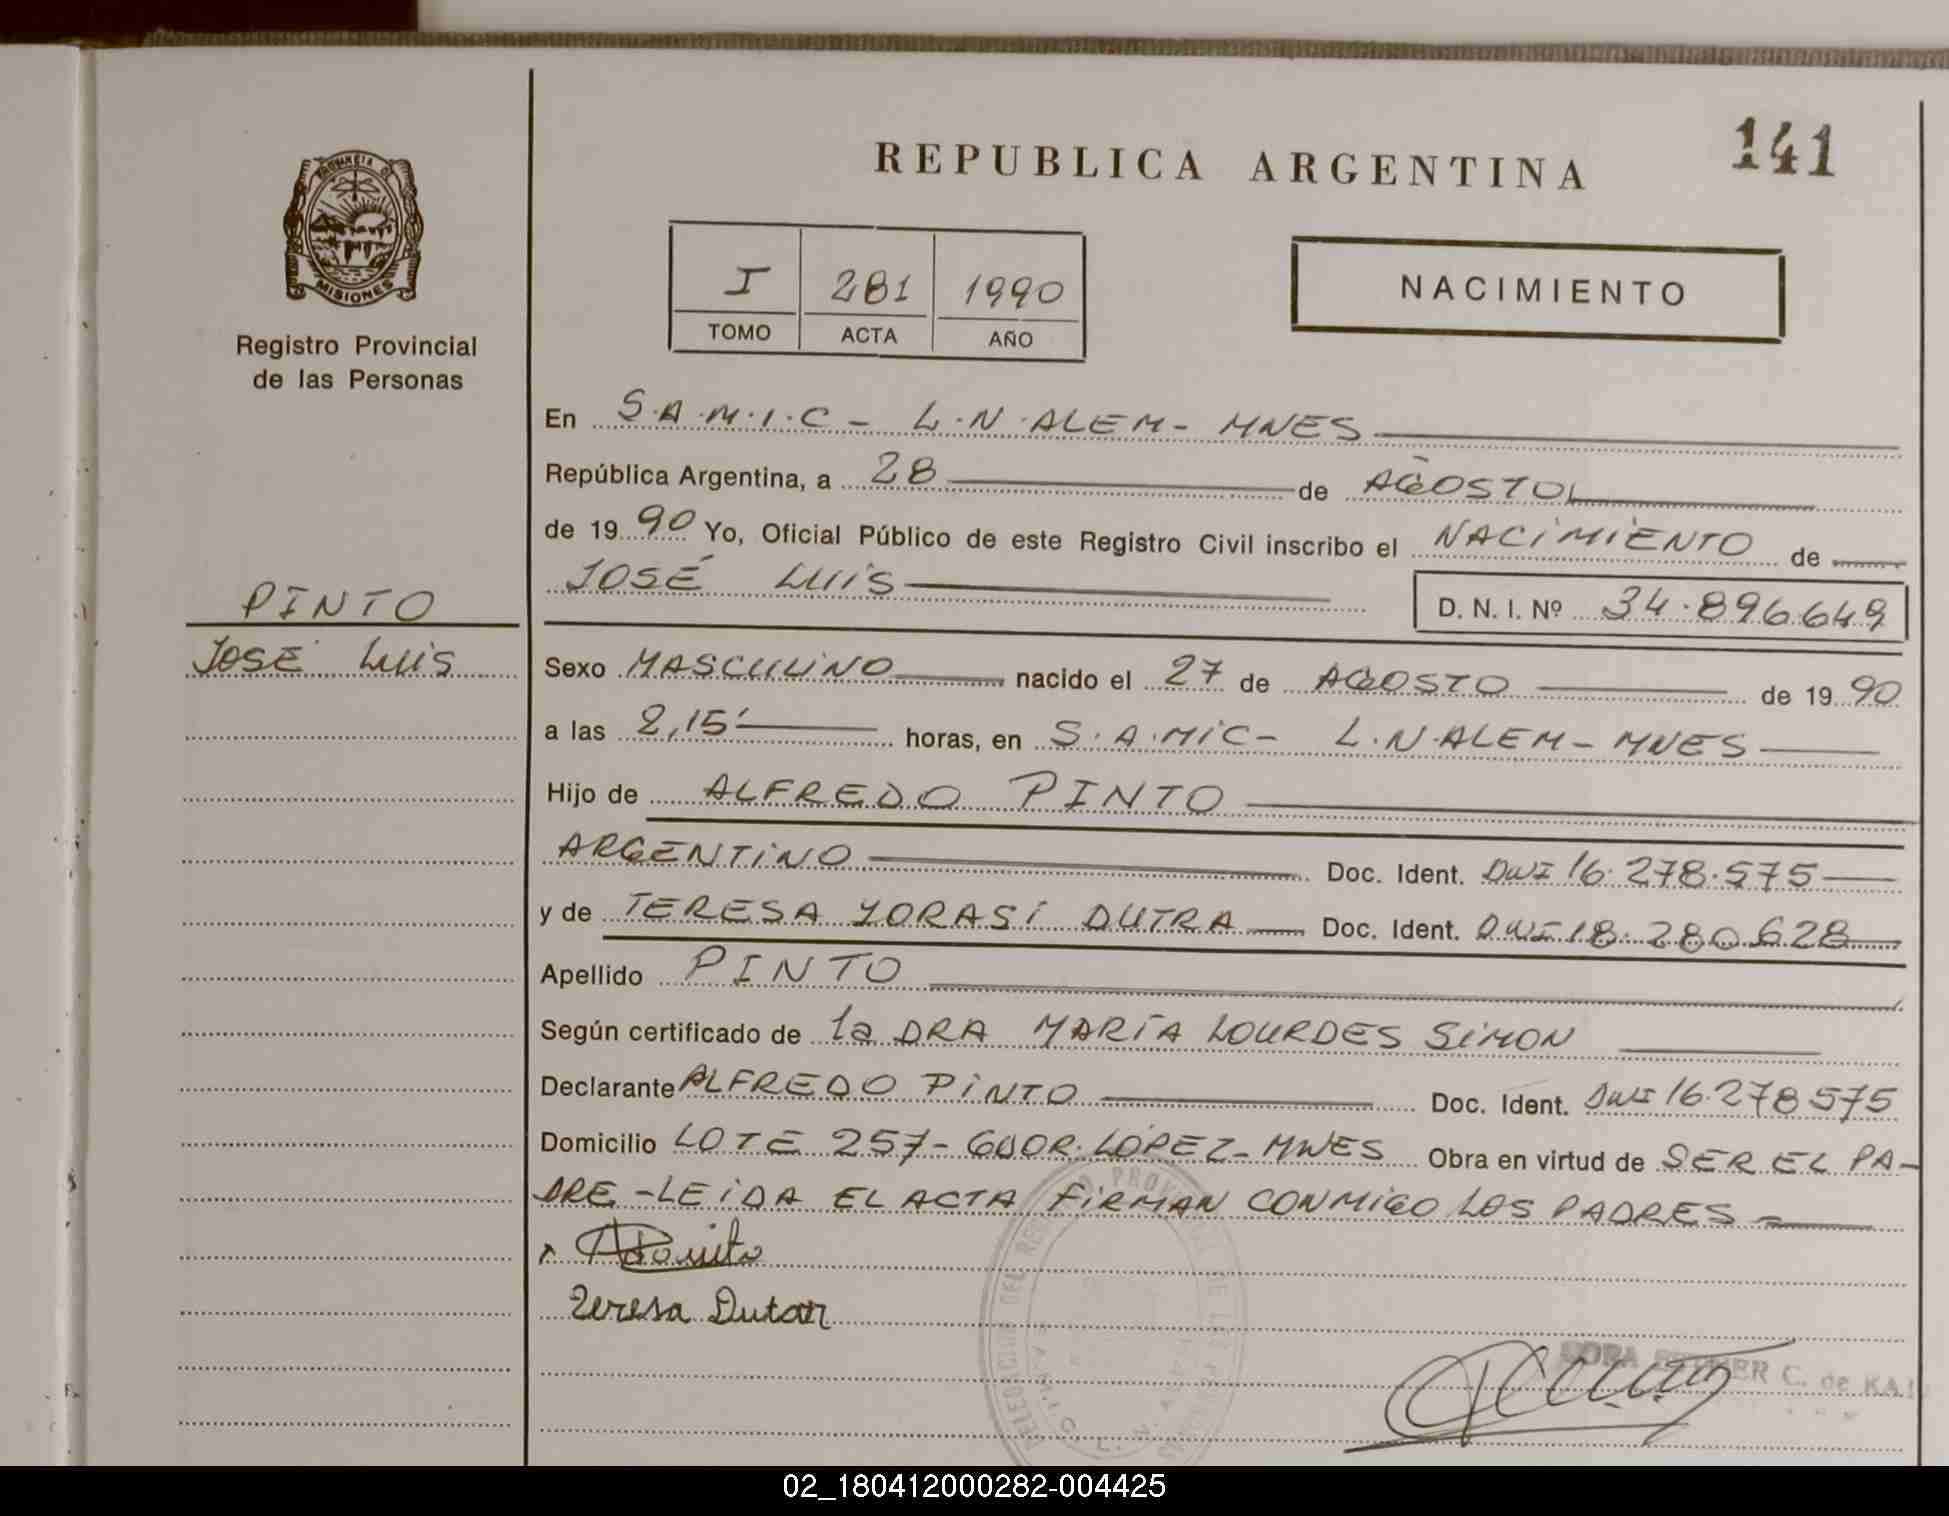 141
REPUBLICA ARGENTINA
PROVINCIA D
MISIONES
Registro Provincial
de las Personas
I 281 1990
TOMO ACTA AÑO
NACIMIENTO
En S.A.M.I.C - L.N.ALEM - MNES
República Argentina, a 28 de AGOSTO
de 19 90 Yo, Oficial Público de este Registro Civil inscribo el NACIMIENTO de
JOSÉ LUIS
D. N. I. Nº 34.896.649
PINTO
JOSÉ LUIS
Sexo MASCULINO nacido el 27 de AGOSTO de 19 90
a las 2,15' horas, en S.A.MIC - L.N.ALEM - MNES
Hijo de ALFREDO PINTO
ARGENTINO Doc. Ident. DNI 16.278.575
y de TERESA YORASI DUTRA Doc. Ident. DNI 18.280.628
Apellido PINTO
Según certificado de la DRA MARÍA LOURDES SIMON
Declarante ALFREDO PINTO Doc. Ident. DNI 16.278575
Domicilio LOTE 257 - GDOR. LÓPEZ - MNES Obra en virtud de SER EL PA-
DRE - LEIDA EL ACTA FIRMAN CONMIGO LOS PADRES -
Teresa Dutar
C. de
02_180412000282-004425